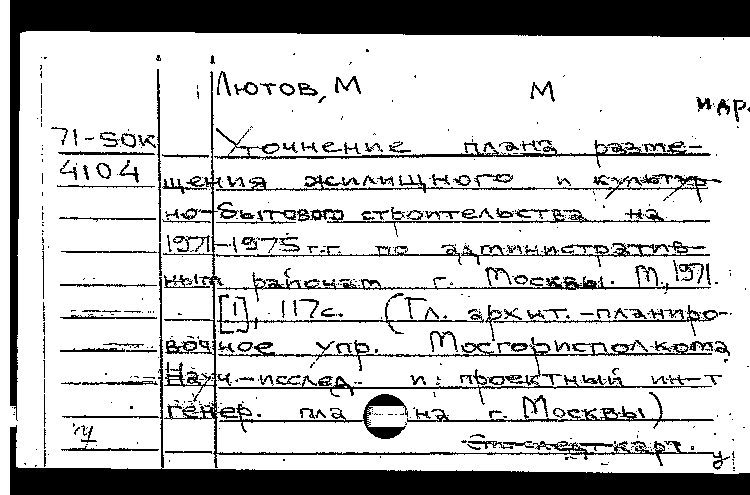 Лютов, М М
и др.
71-5ОК Уточнение плана разме-
4104 щения жилищного и культур-
но-бытового строительства на
1971-1975 г.г. по административ-
ным районам г. Москвы. М., 1971.
[1], 117с. (Гл. архит.-планиро-
вочное упр. Мосгорисполкома
Науч.-исслед. и проектный ин-т
генер. плана г. Москвы)
карт.